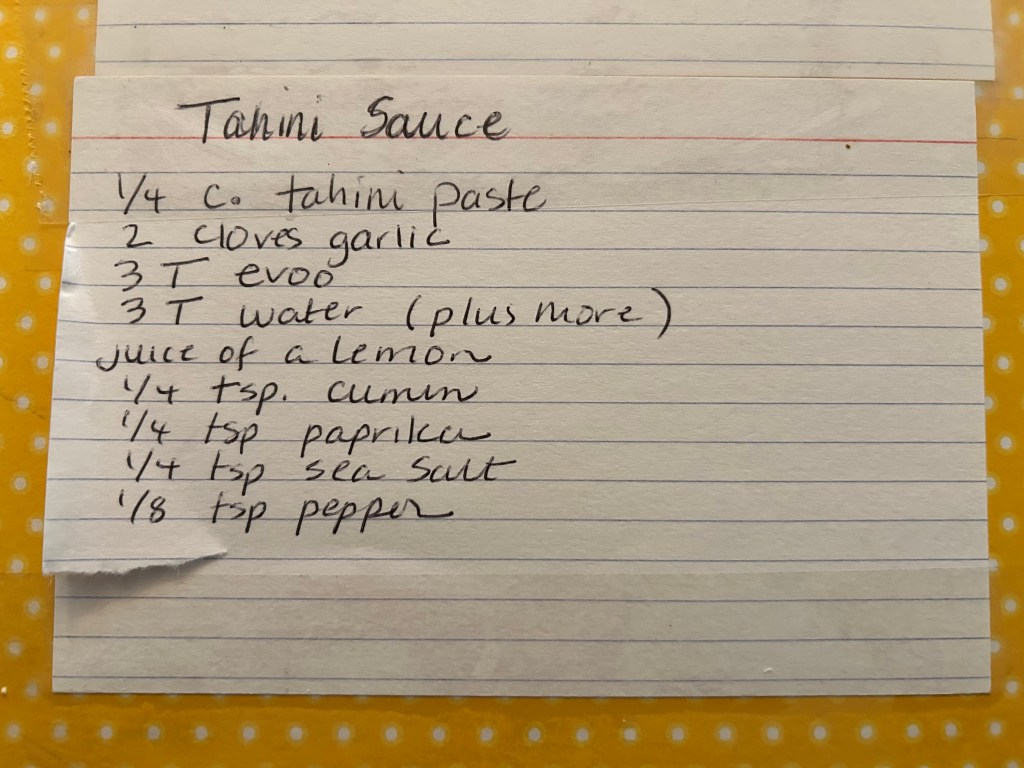 Tahini Sauce
1/4 c. tahini paste
2 cloves garlic
3 T evoo
3 T water (plus more)
juice of a lemon
1/4 tsp. cumin
1/4 tsp paprika
1/4 tsp sea salt
1/8 tsp pepper